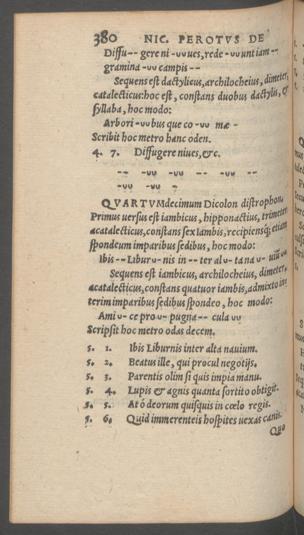 380 NIC. PEROTVS DE
Diffu-- gere ni -υυ ues, rede -υυ unt iam --
gramina -υυ campis --
Sequens est dactylicus, archilocheius, dimeter,
catalecticus: hoc est, constans duobus dactylis, &
syllaba, hoc modo:
Arbori -υυ bus que co -υυ mæ -
Scribit hoc metro hanc oden.
4. 7. Diffugere niues, &c.
-- -υυ -υυ -- -υυ --
-υυ -υυ
QVARTVM decimum Dicolon distrophon,
Primus uersus est iambicus, hipponactius, trimeter
acatalecticus, constans sex iambis, recipiensq; etiam
spondeum imparibus sedibus, hoc modo:
Ibis -- Libur υ- nis in -- ter al υ- ta na υ-
Sequens est iambicus, archilocheius, dimeter,
acatalecticus, constans quatuor iambis, admixto in
terim imparibus sedibus spondeo, hoc modo:
Ami υ- ce pro υ- pugna -- cula υυ
Scripsit hoc metro odas decem.
5. 1. Ibis Liburnis inter alta nauium.
5. 2. Beatus ille, qui procul negotijs.
5. 3. Parentis olim si quis impia manu.
5. 4. Lupis & agnis quanta sortito obtigit.
5. 5. At ô deorum quisquis in cœlo regis.
5. 6. Quid immerenteis hospites uexas canis.
Quo